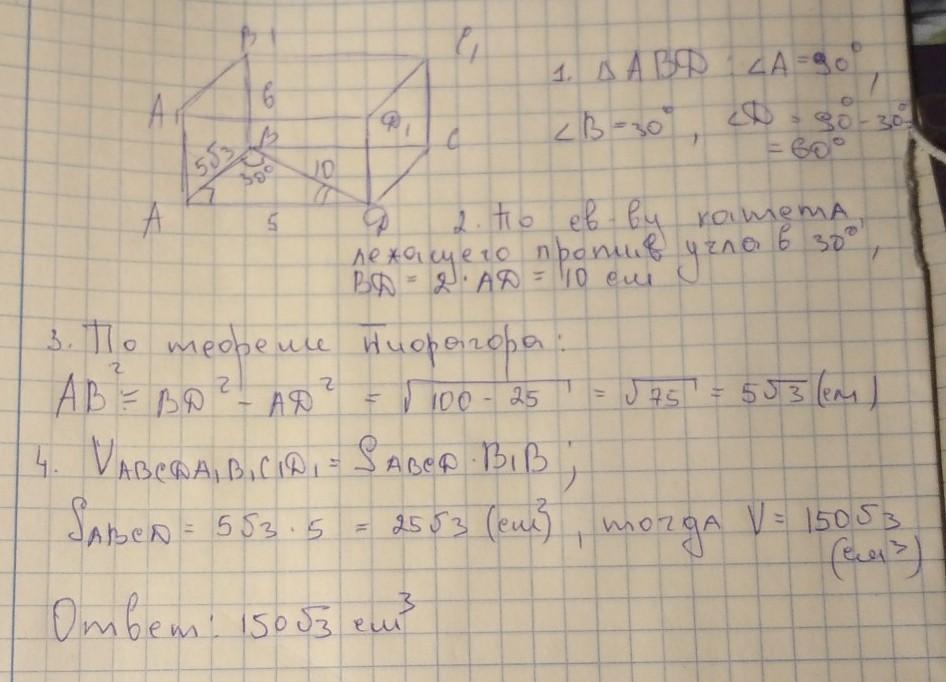 B1
C1
A1
6
D1
B
C
5√3
30°
10
A
5
D
1. ΔABD: ∠A=90°,
∠B=30°, ∠D=90°-30°=
=60°
2. По св-ву катета,
лежащего против угла в 30°,
BD = 2·AD = 10 см
3. По теореме Пифагора:
AB² = BD² - AD² = √100-25 = √75 = 5√3 (см)
4. VABCDA1B1C1D1 = SABCD·B1B;
SABCD = 5√3·5 = 25√3 (см²), тогда V = 150√3
(см³)
Ответ: 150√3 см³